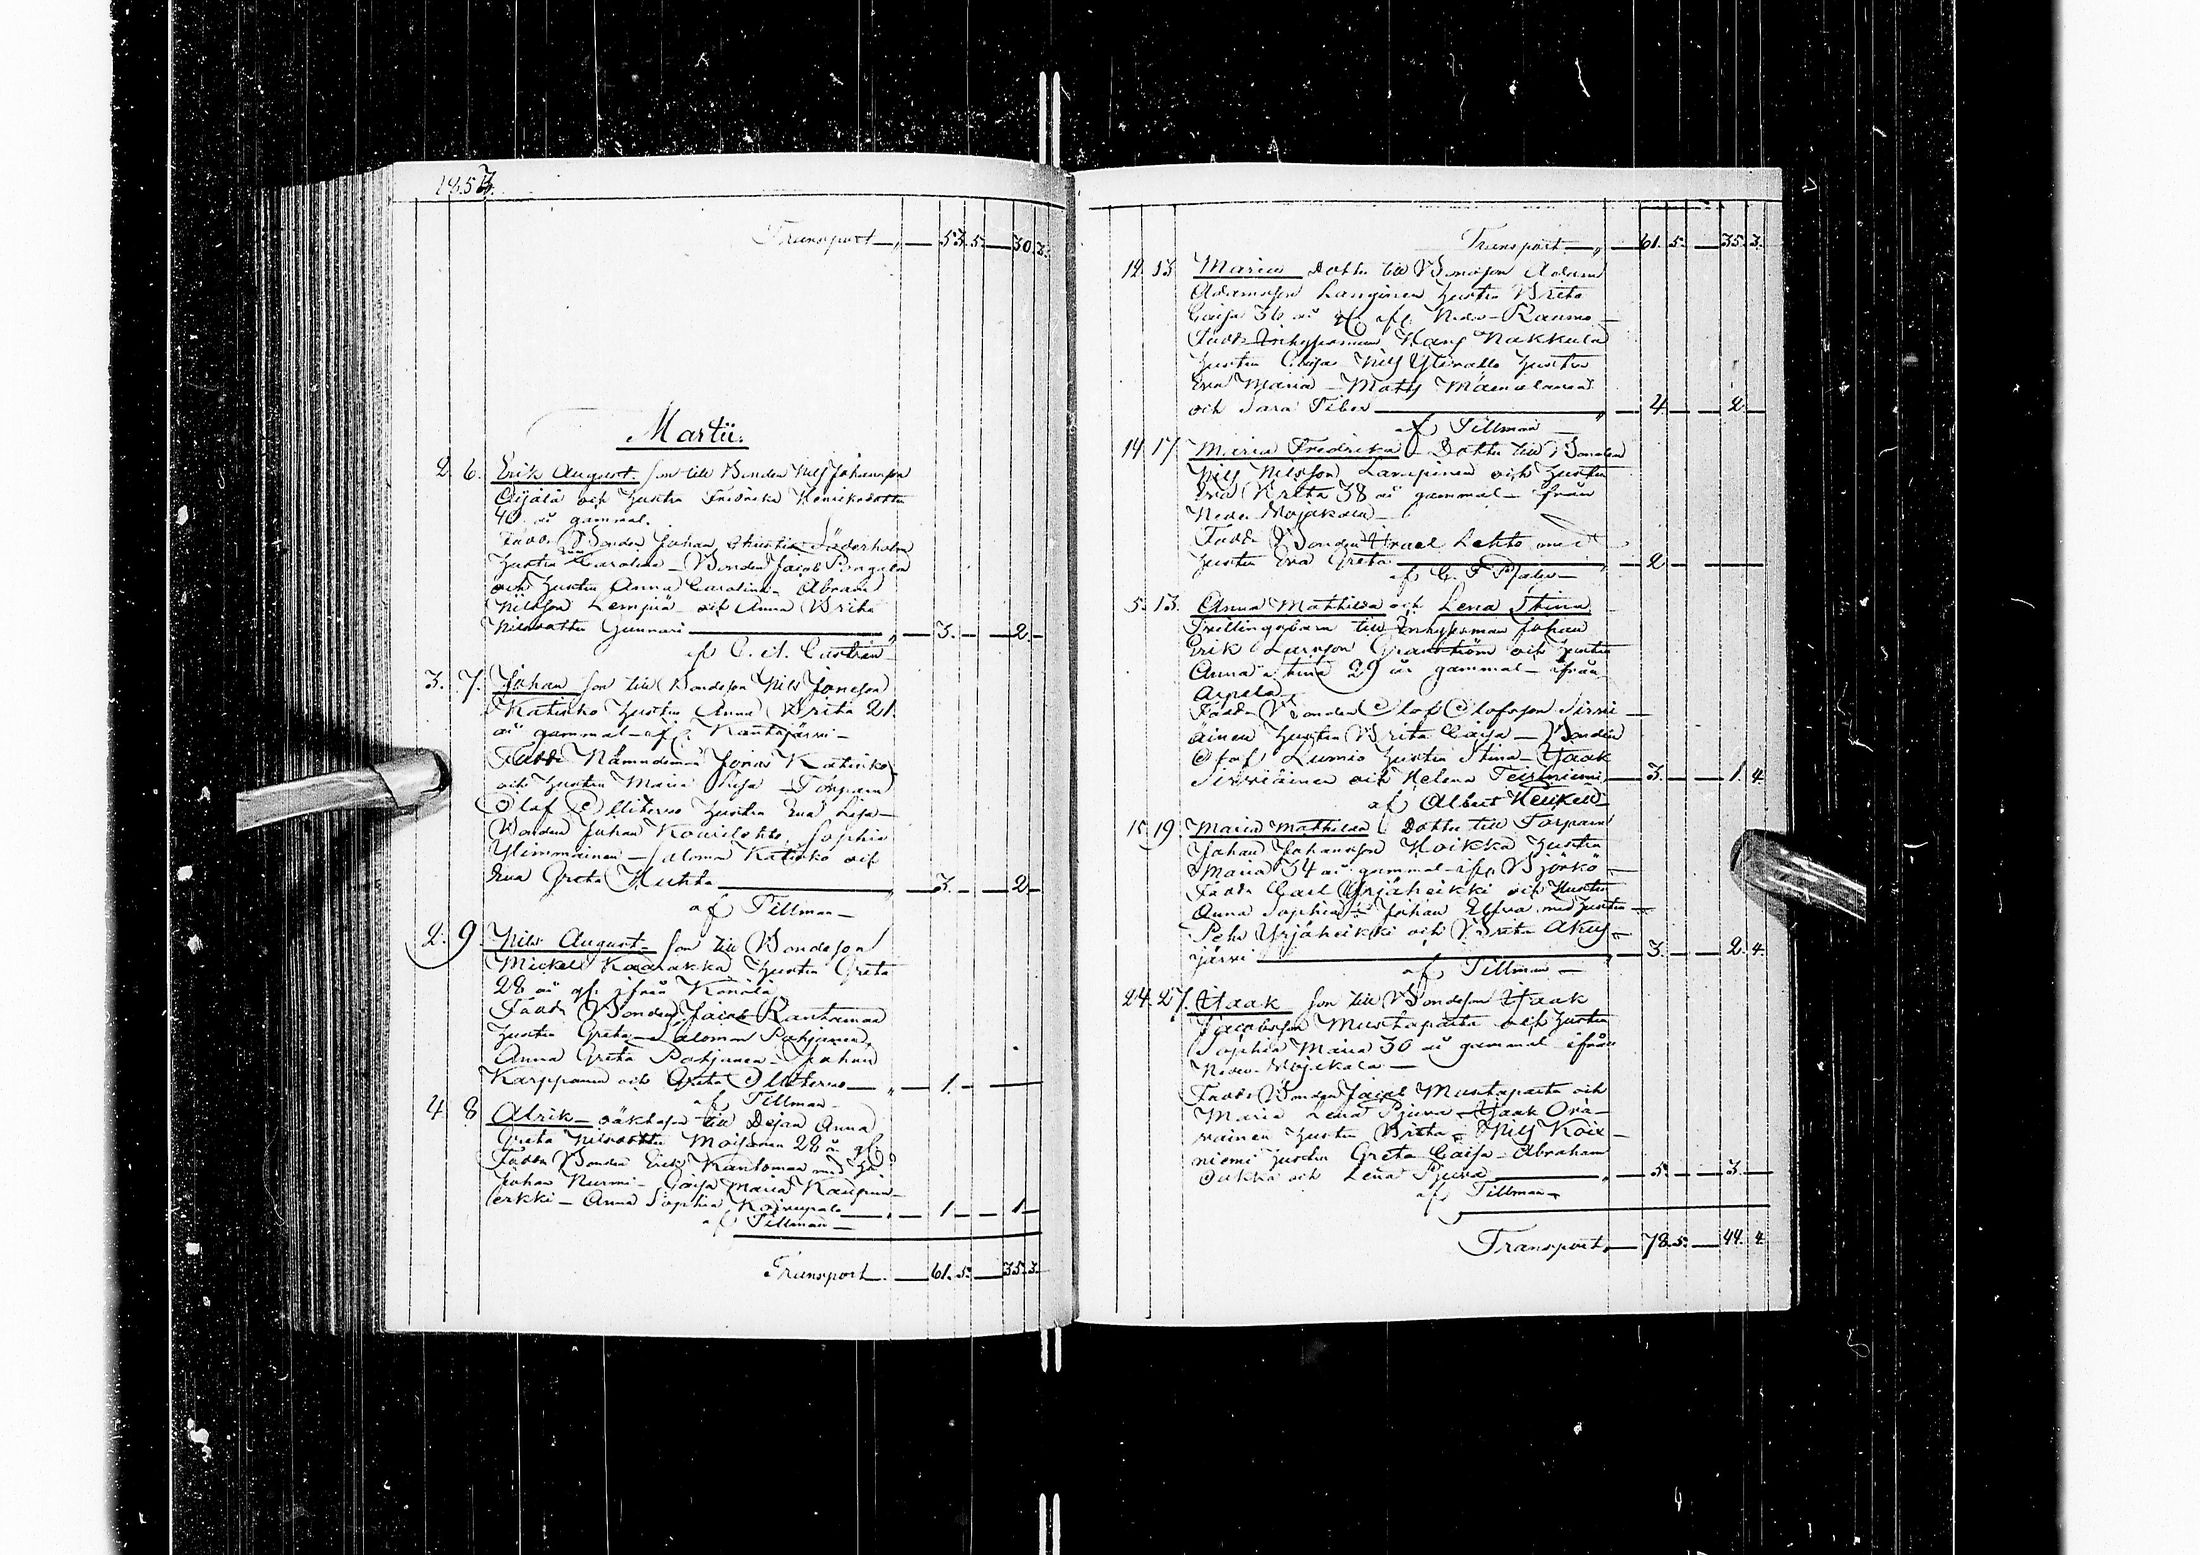 1853.
Transport — 53. 5. — 30. 3.
Martii.
2. 6. Erik August. son till Bonden Nils Johansson
Äijälä och hustru Fredrika Henriksdotter
40 år gammal.
Fadd. Bonden Johan Söderholm
hustru Carolina — Bonden Jacob
och hustru Anna Carolina — Abram
Nilsson Lempiä och Anna Brita
Nilsdotter Gunnari — 3. — 2 —
af C. A. Castrén
3. 7. Johan son till Bondeson Nils Jonsson
Katisko hustru Anna Brita 21
år gammal — af Kantojärvi —
Fadd. Nämndeman Jonas Katisko
och hustru Maria Lisa — Torparn
Olaf Ollitervo hustru Eva Lisa —
Bonden Johan Kourilehto, Sophia
Ylimmäinen — Salomon Katisko och
Eva Greta Huhta — 3. — 2 —
af Tillman —
2. 9. Nils August — son till Bondeson
Mickel Kaarakka hustru Greta
28 år gl. ifrån Karsälä
Fadd. Bonden Jacob Rantamaa
hustru Greta — Salomon Pohjanen,
Anna Greta Pohjanen — Johan
Karppanen och Greta Ollitervo — 1. —
af Tillman —
4 8 Alrik — oäkta son till Dejan Anna
Greta Nilsdotter Moisanen 28 år gl.
Fadd. Bonden Erik Kantomaa med hu
Johan Nurmi — Caisa Maria Kaupin
lerkki — Anna Sophia Koivupalo — 1 — 1 —
af Tillman —
Transport. — 61. 5. — 35. 3.
Transport — 61. 5. — 35. 3.
12. 13 Maria Dotter till Bondeson Adam
Adamsson Langinen hustru Brita
Caisa 36 år gl. af. Neder-Raumo —
Fadd. Inhysesman Hans Nakkula
hustru Caisa Nils Ylirallo hustru
Eva Maria — Mats Mämmelainen
och Sara Piber — 4 — 2 —
af Tillman —
14. 17. Maria Fredrika — Dotter till Bonden
Nils Nilsson Lampinen och hustru
Eva Greta 38 år gammal — från
Neder Wojakala —
Fadd. Bonden Israel Lehto med
hustru Eva Greta — 2 —
af C. F.
5. 13. Anna Mathilda och Lena Stina
Tvillingsbarn till Inhysesman Johan
Erik Larsson Granström och hustru
Anna Stina 29 år gammal — ifrån
Arpela
Fadd. Bonden Olof Olofsson Sirvi —
äinen hustru Brita Caisa — Bonden
Olof Lumio hustru Stina — Isaak
Sirviäinen och Helena Teiskiniemi — 3. — 1. 4.
af Albert Heikel —
15. 19. Maria Mathilda Dotter till Torparn
Johan Johansson Koikka hustru
Maria 34 år gammal ifr. Björkö —
Fadd. Carl Yrjäheikki och Hustru
Anna Sophia — Johan Elfva med hustru —
Pehr Yrjäheikki och Brita Akus —
järvi — 3. — 2. 4.
af Tillman —
24. 27. Isaak son till Bondeson Isaak
Jacobsson Mustaparta och hustru
Sophia Maria 30 år gammal ifrån
Neder Wojakala —
Fadd. Bonden Jacob Mustaparta och
Maria Lena Pjuva — Isaak Ora —
vainen hustru Brita — Nils Koi —
niemi hustru Greta Caisa — Abraham
Oukka och Lena Pjuva — 5. — 3. —
af Tillman —
Transport, — 78. 5. — 44. 4.